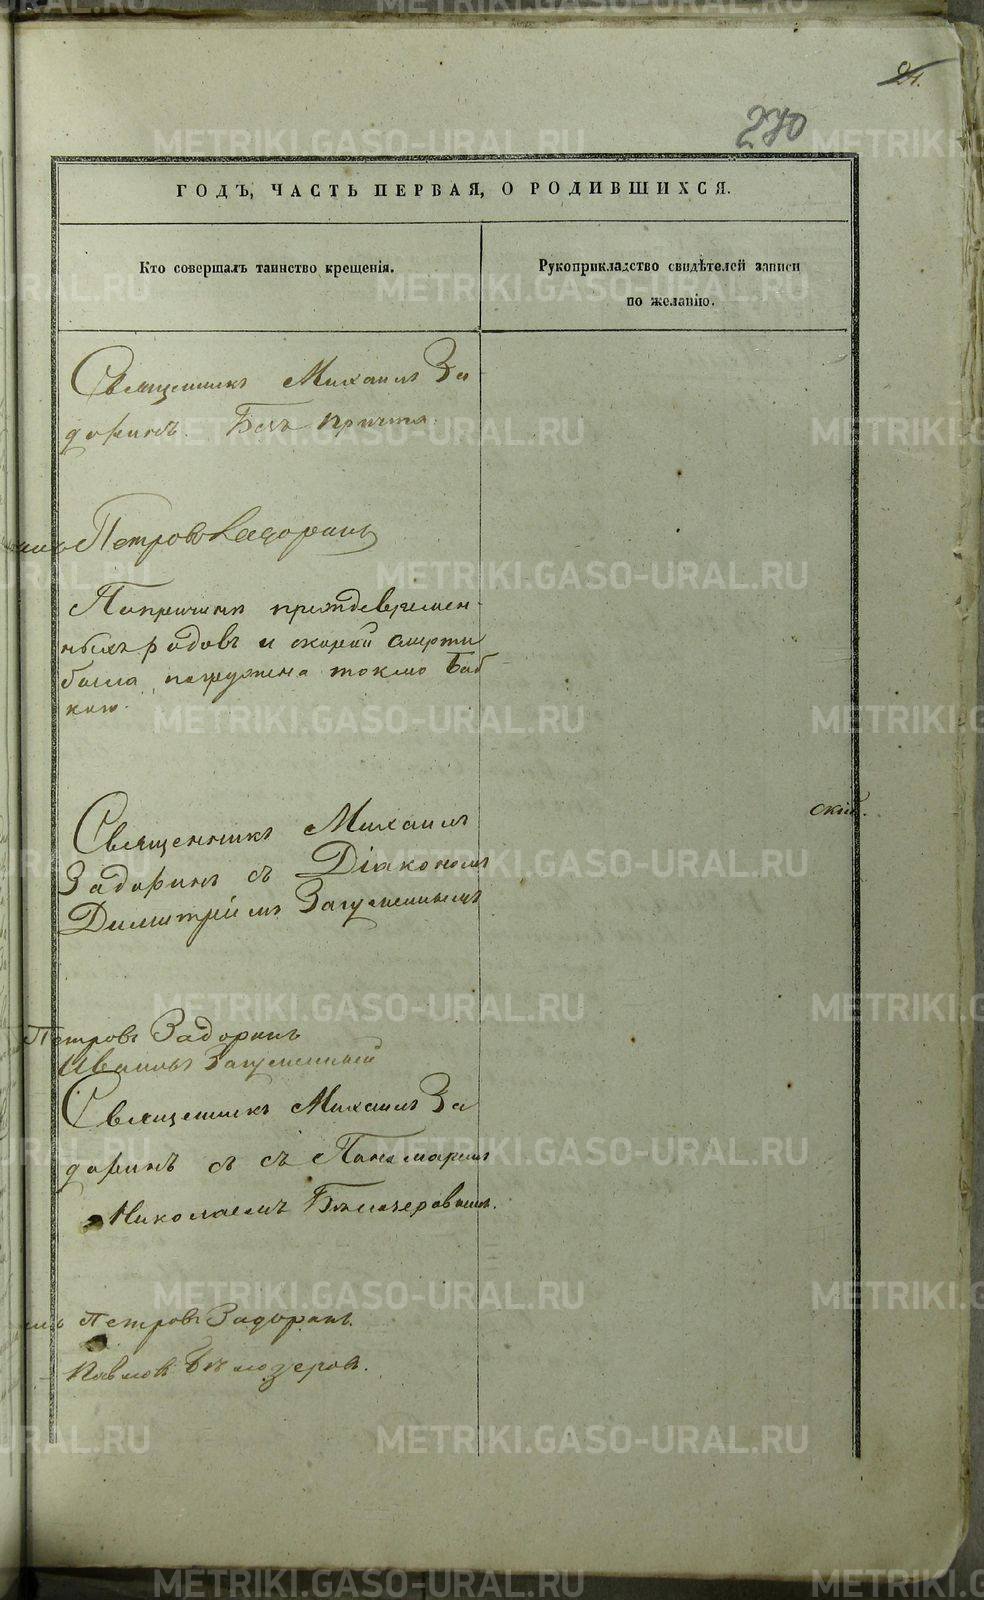 270
ГОДЪ, ЧАСТЬ ПЕРВАЯ, О РОДИВШИХСЯ.
Кто совершалъ таинство крещенія.
Рукоприкладство свидѣтелей записи
по желанію.
Священникъ Михаилъ За
доринъ. Безъ причта.
Петровъ Задоринъ
По причинѣ преждевремен-
ныхъ родовъ и скорой смерти
была погружена токмо баб
кою.
скій.
Священникъ Михаилъ
Задоринъ съ Діакономъ
Димитріемъ Загуменнымъ
Петровъ Задоринъ
Ивановъ Загуменный
Священникъ Михаилъ За
доринъ съ съ Пономаремъ
Николаемъ Бѣлозеровымъ.
Петровъ Задоринъ.
Павловъ Бѣлозеровъ.
METRIKI.GASO-URAL.RU